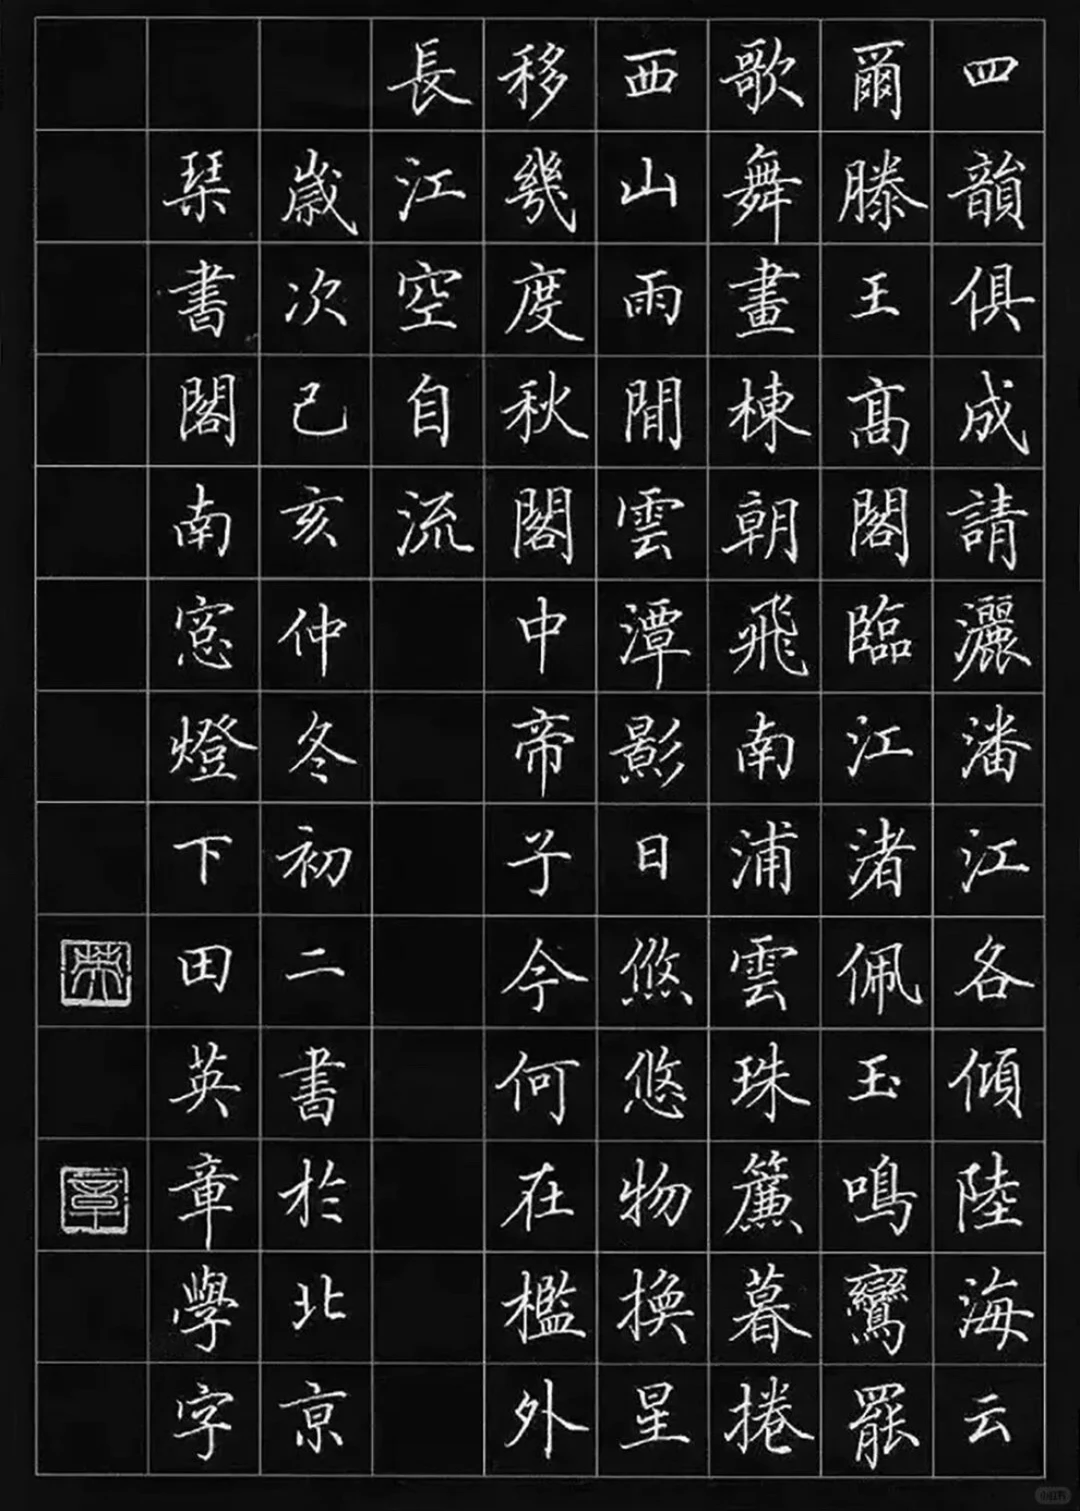 四韻俱成請灑潘江各傾陸海云
爾滕王髙閣臨江渚佩玉鳴鸞罷
歌舞畫棟朝飛南浦雲珠簾暮捲
西山雨閒雲潭影日悠悠物換星
移幾度秋閣中帝子今何在檻外
長江空自流
歲次己亥仲冬初二書於北京
琹書閣南窓燈下田英章學字
英
章
小红书